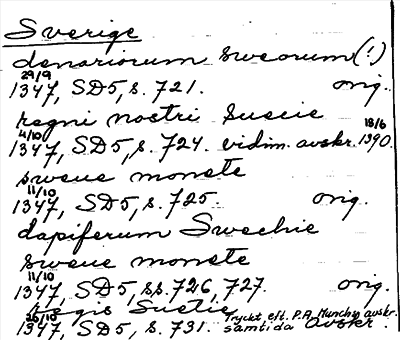 Sverige
denariorum sweorum (!)
29/9
1347, SD5, s. 721. orig.
regni nostri Suecie
4/10 18/6
1347, SD5, s. 724. vidim. avskr. 1390.
sweue monete
11/10
1347, SD5, s. 725. orig.
dapiferum Swechie
sweue monete
11/10
1347, SD5, ss. 726, 727. orig.
regis Suetie
26/10 Tryckt eft. P.A. Munchs avskr.
1347, SD5, s. 731. samtida avskr.